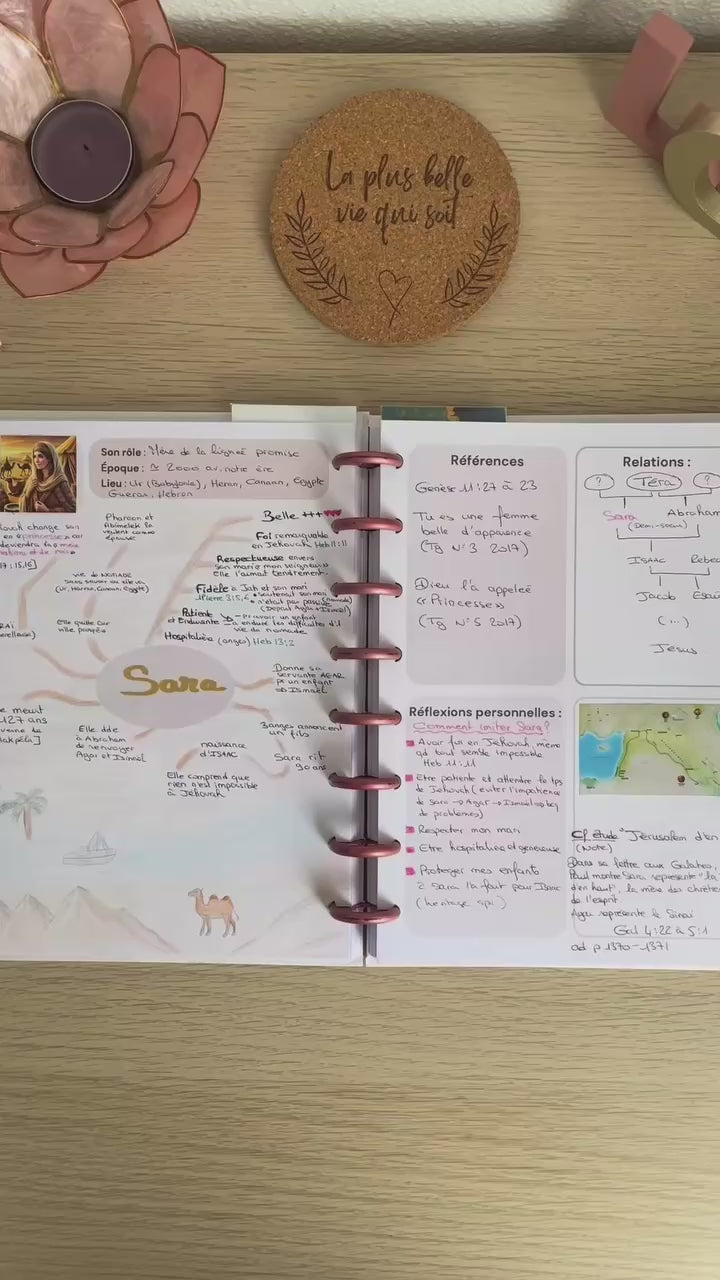 La plus belle
vie qui soit
Son rôle : Mère de la lignée promise
Époque : ≃ 2000 av. notre ère
Lieu : Ur (Babylonie), Haran, Canaan, Egypte
Guérar, Hébron
change son
en princesse car
deviendra la mère
nations et de rois
17:15,16]
Pharaon et
Abimélek la
veulent comme
épouse
Belle +++
Foi remarquable
en Jéhovah Heb 11:11
Respectueuse envers
son mari "mon seigneur"
elle l'aimait tendrement.
Fidèle à Jah et son mari
1Pierre 3:5,6
soutenait son mari
n'était pas passive
Patiente
et Endurante
pr avoir un enfant
a enduré les difficultés d'1
vie de nomade
Hospitalière (anges) Heb 13:2
vie de NOMADE
sans savoir où elle va
(Ur, Harran, Canaan, Egypte)
Elle quitte Our
ville prospère
Sara
Donne sa
servante AGAR
pr un enfant
⇒ Ismaël
3 anges annoncent
un fils
Sara rit
90 ans
naissance
d'ISAAC
Elle comprend que
rien n'est impossible
à Jéhovah
Elle dde
à Abraham
de renvoyer
Agar et Ismaël
meurt
127 ans
Références
Genèse 11:27 à 23
Tu es une femme
belle d'apparence
(Tg N°3 2017)
Dieu l'a appelée
« Princesse »
(Tg N°5 2017)
Relations :
? Téra ?
Sara Abraham
(Demi-soeur)
ISAAC Rebec
Jacob Esaü
(...)
Jésus
Réflexions personnelles :
Comment imiter Sara ?
Avoir foi en Jéhovah, même
qd tout semble impossible
Heb 11:11
Etre patiente et attendre le tps
de Jéhovah (éviter l'impatience
de Sara → Agar → Ismaël → bcp
de problèmes)
Respecter mon mari
Etre hospitalière et généreuse
Protéger mes enfants
cô Sara l'a fait pour Isaac
(héritage spi)
Cf étude "Jérusalem d'en
(Note)
Dans sa lettre aux Galates,
Paul montre Sara représente "la
d'en haut", la mère des chrétiens
de l'esprit
Agar représente le Sinaï
Gal 4:22 à 5:1
ad p 1370-1371